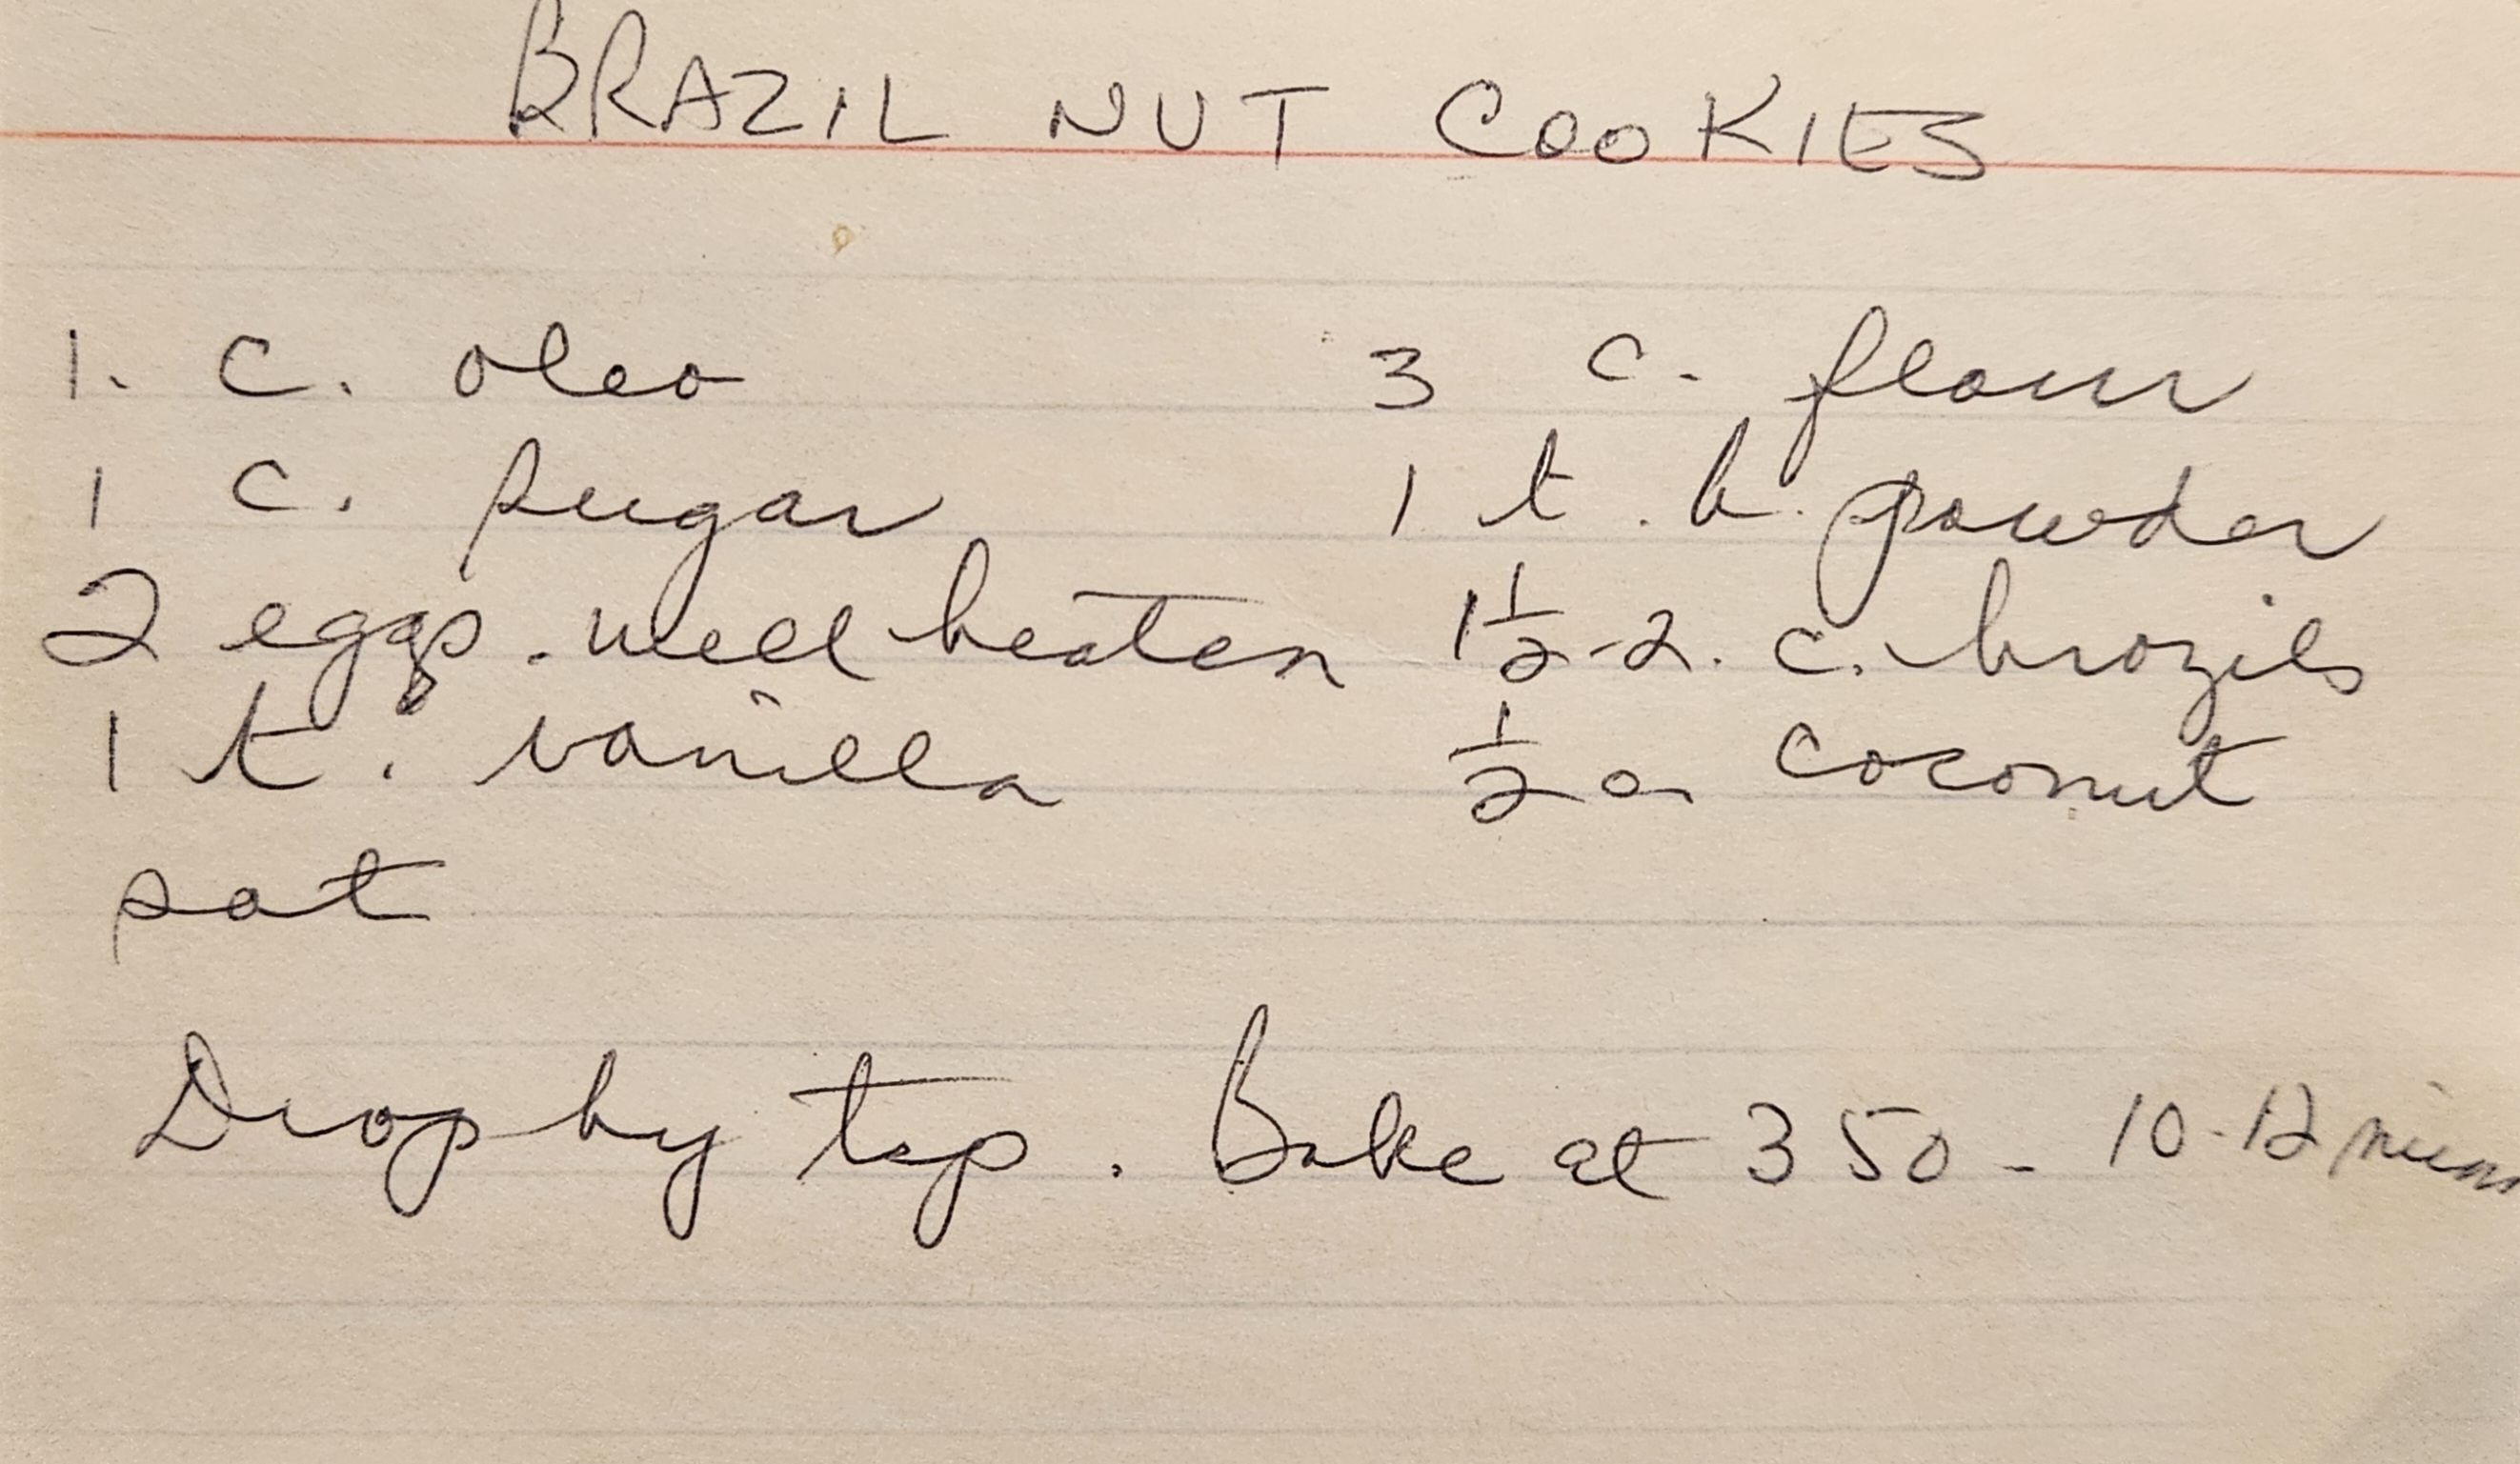 BRAZIL NUT COOKIES
1. c. oleo 3 c. flour
1 c. sugar 1 t. b. powder
2 eggs. well beaten 1 1/2-2. c. brazils
1 t. vanilla 1/2 c. coconut
sat
Drop by tsp. Bake at 350 - 10-12 mins